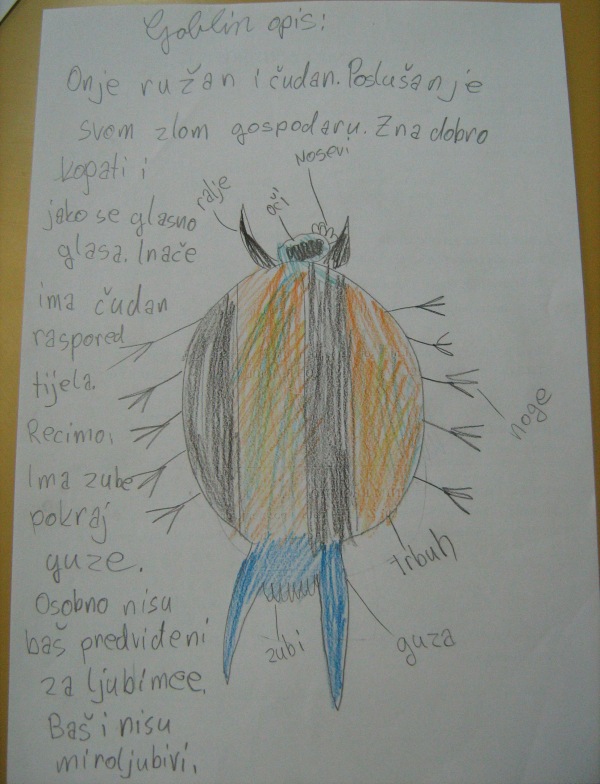 Goblin opis:
On je ružan i čudan. Poslušan je
svom zlom gospodaru. Zna dobro
kopati i
jako se glasno
glasa. Inače
ima čudan
raspored
tijela.
Recimo,
Ima zube
pokraj
guze.
Osobno nisu
baš predviđeni
za ljubimce.
Baš i nisu
miroljubivi.
ralje
oči
Nosevi
noge
trbuh
guza
zubi